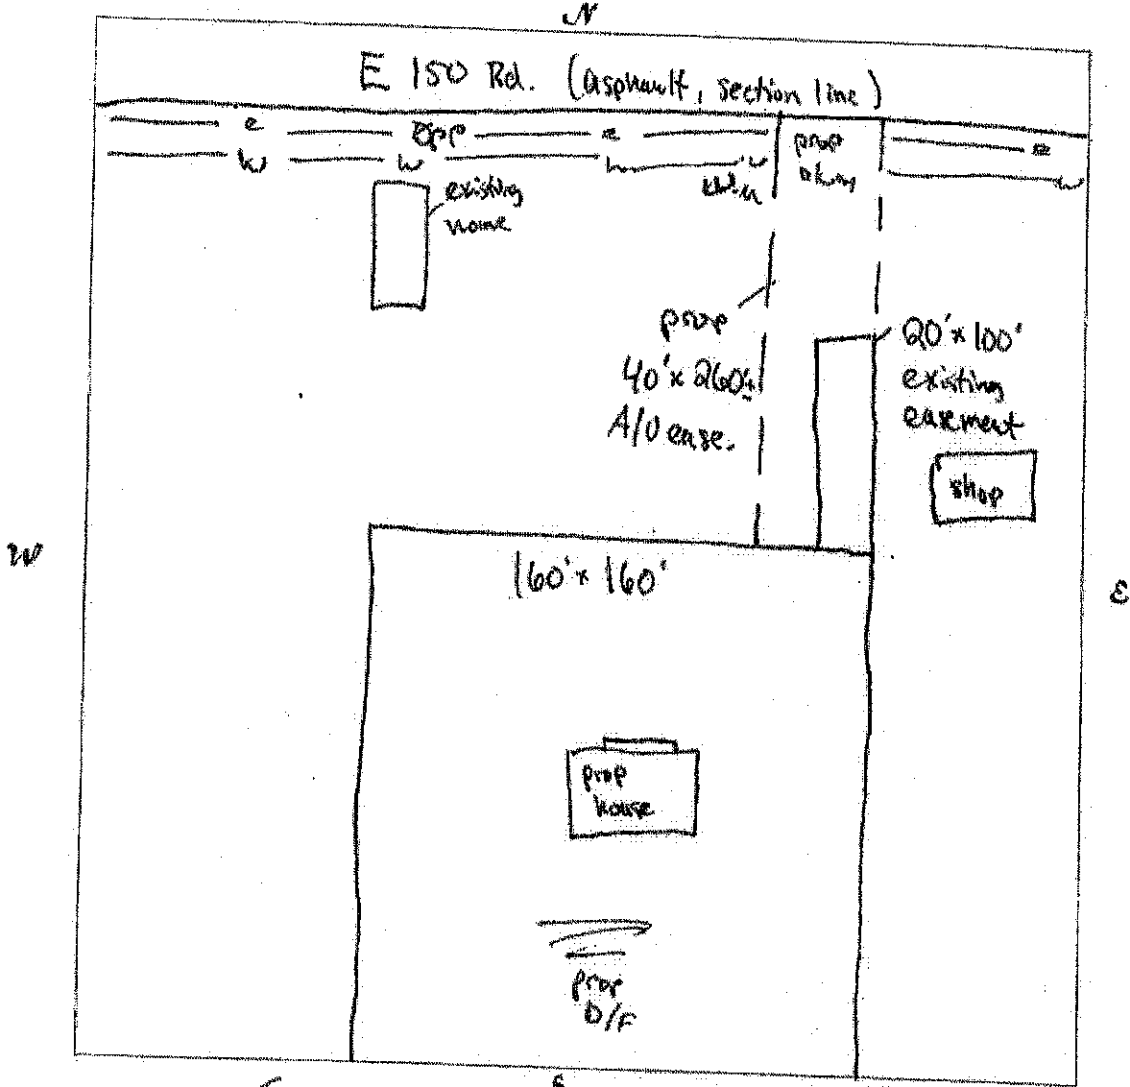 N
E 150 Rd. (asphault, section line)
e e e
w w w w
existing
home
prop
prop
40' x 260'±
A/U ease.
20' x 100'
existing
easement
shop
W
E
160' x 160'
prop
house
prop
D/F
S